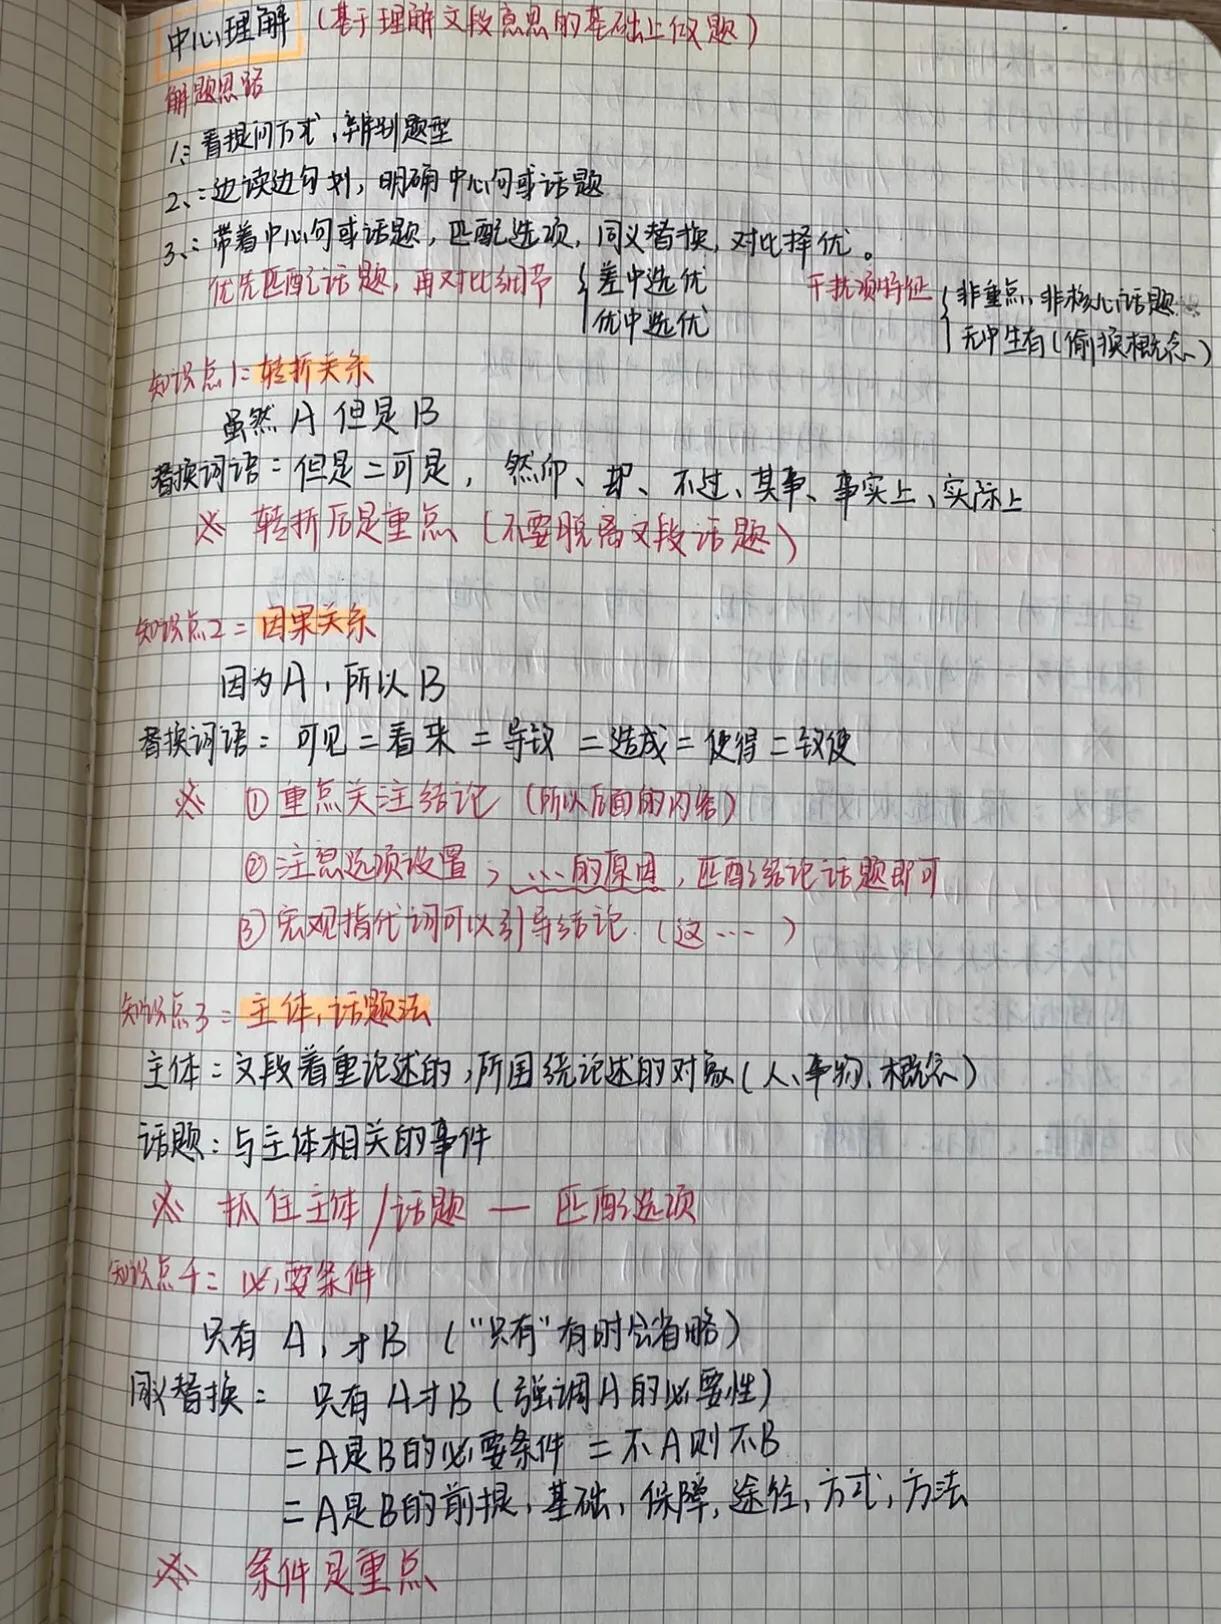 中心理解（基于理解文段意思的基础上做题）
解题思路
1、：看提问方式，辨别题型
2、：边读边勾划，明确中心句或话题
3、：带着中心句或话题，匹配选项，同义替换，对比择优。
优先匹配话题，再对比细节｛差中选优 干扰项特征｛非重点，非核心话题
优中选优 无中生有（偷换概念）
知识点1：转折关系
虽然A但是B
替换词语：但是＝可是，然而、却、不过、其事、事实上、实际上
※ 转折后是重点（不要脱离文段话题）
知识点2：因果关系
因为A，所以B
替换词语：可见＝看来＝导致＝造成＝使得＝致使
※ ①重点关注结论（所以后面的内容）
②注意选项设置，……的原因，匹配结论话题即可
③宏观指代词可以引导结论.（这……）
知识点3：主体，话题法
主体：文段着重论述的，所围绕论述的对象（人、事物、概念）
话题：与主体相关的事件
※ 抓住主体/话题 — 匹配选项
知识点4：必要条件
只有A，才B（“只有”有时会省略）
同义替换：只有A才B（强调A的必要性）
＝A是B的必要条件＝不A则不B
＝A是B的前提，基础，保障，途径，方式，方法
※ 条件是重点